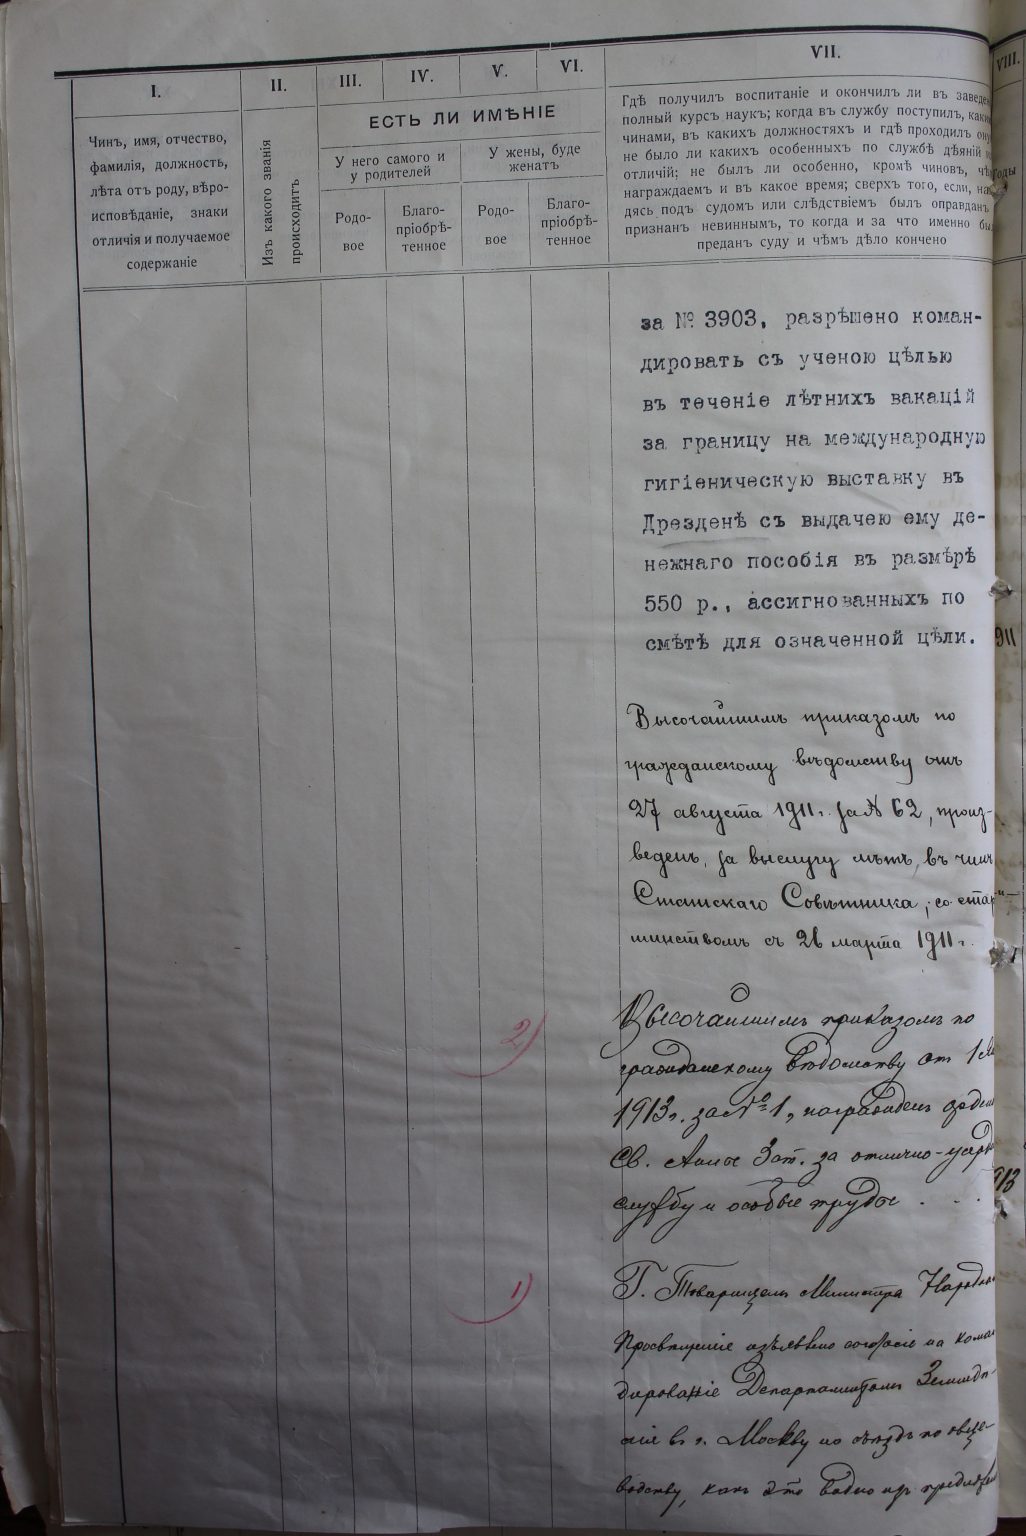 I.
II.
III.
IV.
V.
VI.
VII.
VIII.
Чинъ, имя, отчество,
фамилія, должность,
лѣта отъ роду, вѣро-
исповѣданіе, знаки
отличія и получаемое
содержаніе
Изъ какого званія
происходитъ
ЕСТЬ ЛИ ИМѢНІЕ
У него самого и
у родителей
У жены, буде
женатъ
Родо-
вое
Благо-
пріобрѣ-
тенное
Родо-
вое
Благо-
пріобрѣ-
тенное
Гдѣ получилъ воспитаніе и окончилъ ли въ заведе
полный курсъ наукъ; когда въ службу поступилъ, каки
чинами, въ какихъ должностяхъ и гдѣ проходилъ
не было ли какихъ особенныхъ по службѣ дѣяній
отличій; не былъ ли особенно, кромѣ чиновъ, чѣ
награждаемъ и въ какое время; сверхъ того, если, на
дясь подъ судомъ или слѣдствіемъ былъ оправданъ
признанъ невиннымъ, то когда и за что именно бы
преданъ суду и чѣмъ дѣло кончено
оды
за № 3903, разрѣшено коман-
дировать съ ученою цѣлью
въ теченіе лѣтнихъ вакацій
за границу на международную
гигіеническую выставку въ
Дрезденѣ съ выдачею ему де-
нежнаго пособія въ размѣрѣ
550 р., ассигнованныхъ по
смѣтѣ для означенной цѣли.
911
Высочайшимъ приказомъ по
гражданскому вѣдомству отъ
27 августа 1911 г. за № 62, произ-
веденъ, за выслугу лѣтъ, въ чинъ
Статскаго Совѣтника, со стар
шинствомъ съ 26 марта 1911 г.
2)
Высочайшимъ приказомъ по
гражданскому вѣдомству от 1 Ян
1913 г. за № 1, награжденъ орден
Св. Анны 3 ст. за отлично-усерд
службу и особые труды . . .
913
1)
Г. Товарищемъ Министра Народн
Просвѣщенія изъявлено согласіе на коман
дированіе Департаментомъ Земледѣ-
лія въ г. Москву на съѣздъ по овце-
водству, какъ это видно изъ предлож